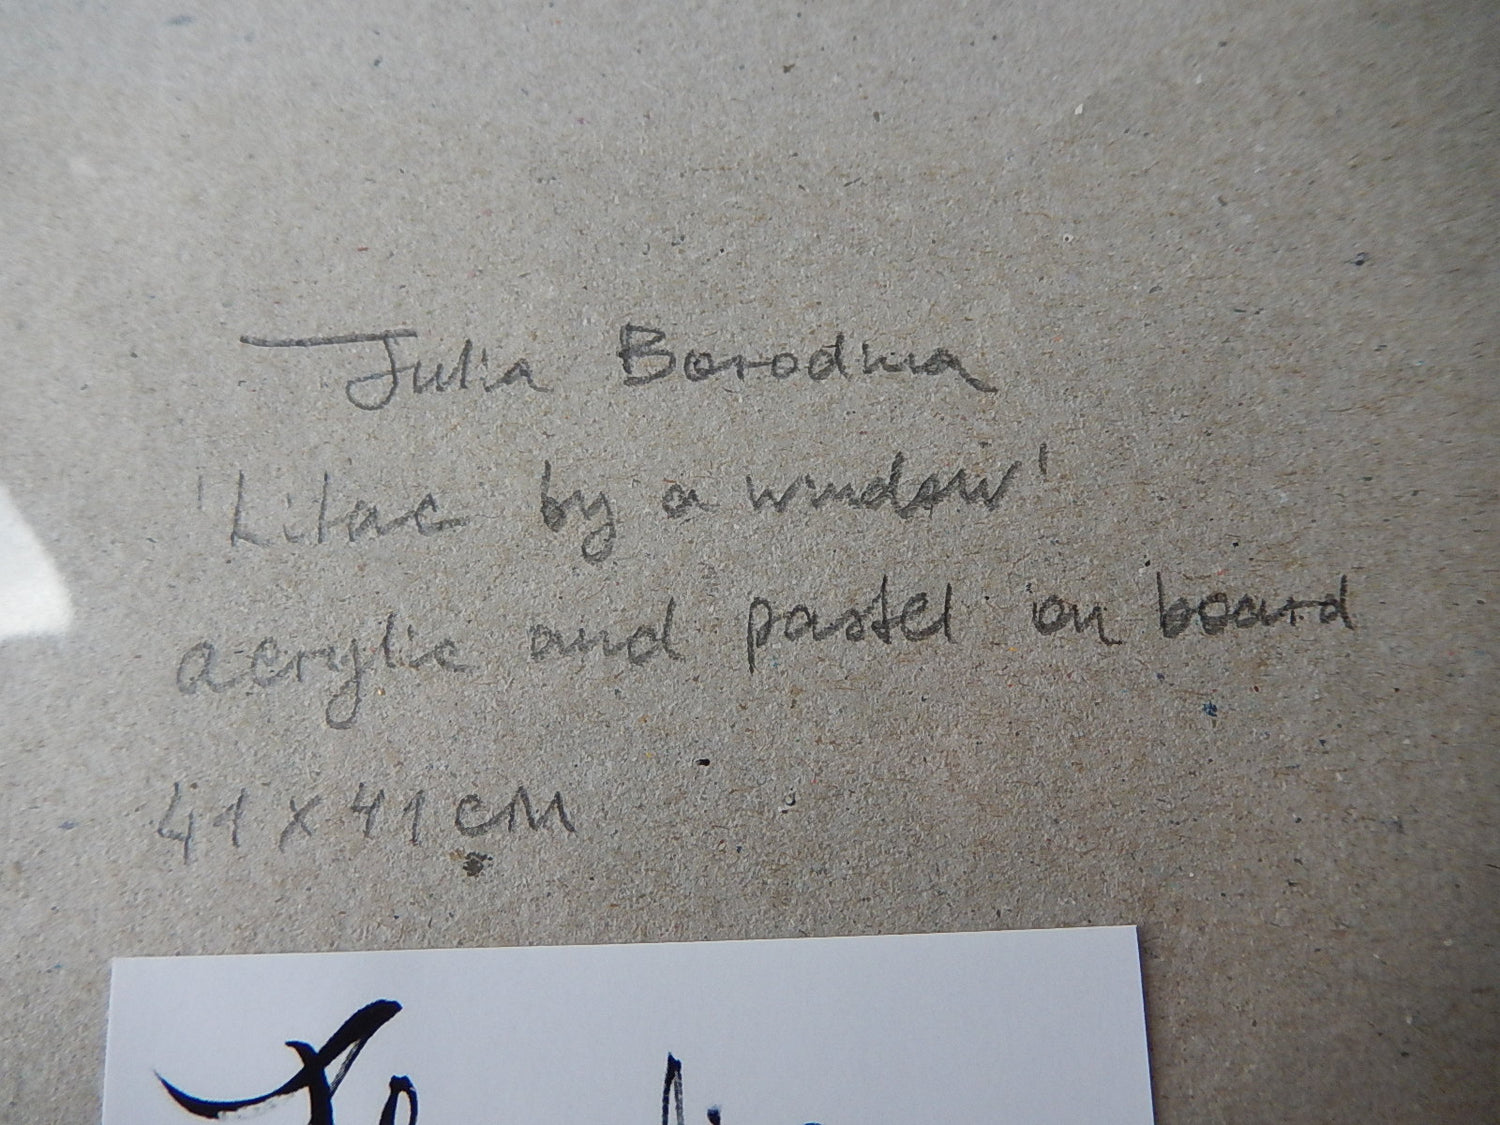 Julia Borodina
'Lilac by a window'
acrylic and pastel on board
41 x 41 cm